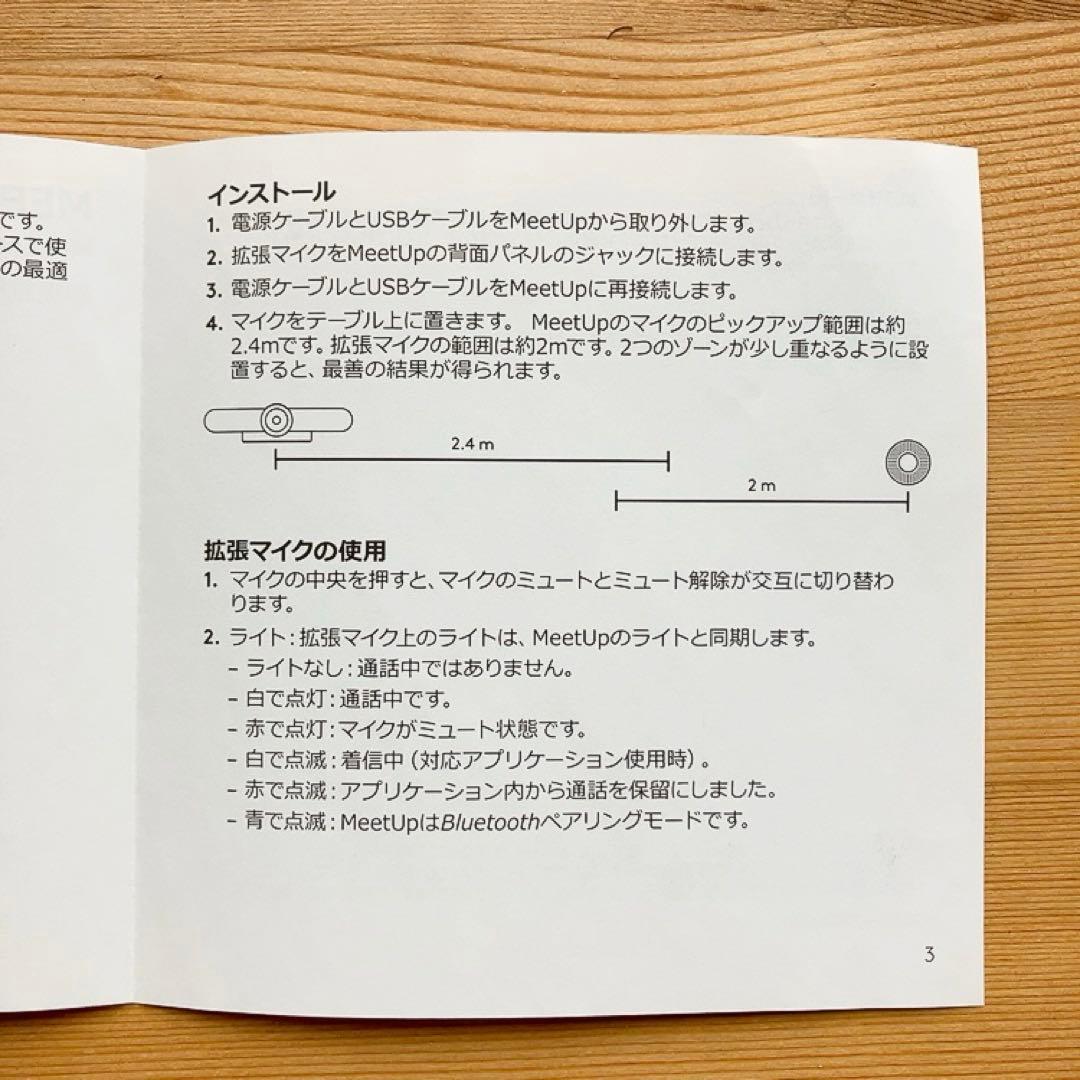 です。
ースで使
の最適
インストール
1. 電源ケーブルとUSBケーブルをMeetUpから取り外します。
2. 拡張マイクをMeetUpの背面パネルのジャックに接続します。
3. 電源ケーブルとUSBケーブルをMeetUpに再接続します。
4. マイクをテーブル上に置きます。 MeetUpのマイクのピックアップ範囲は約
2.4mです。拡張マイクの範囲は約2mです。2つのゾーンが少し重なるように設
置すると、最善の結果が得られます。
2.4 m
2 m
拡張マイクの使用
1. マイクの中央を押すと、マイクのミュートとミュート解除が交互に切り替わ
ります。
2. ライト：拡張マイク上のライトは、MeetUpのライトと同期します。
– ライトなし：通話中ではありません。
– 白で点灯：通話中です。
– 赤で点灯：マイクがミュート状態です。
– 白で点滅：着信中（対応アプリケーション使用時）。
– 赤で点滅：アプリケーション内から通話を保留にしました。
– 青で点滅：MeetUpはBluetoothペアリングモードです。
3